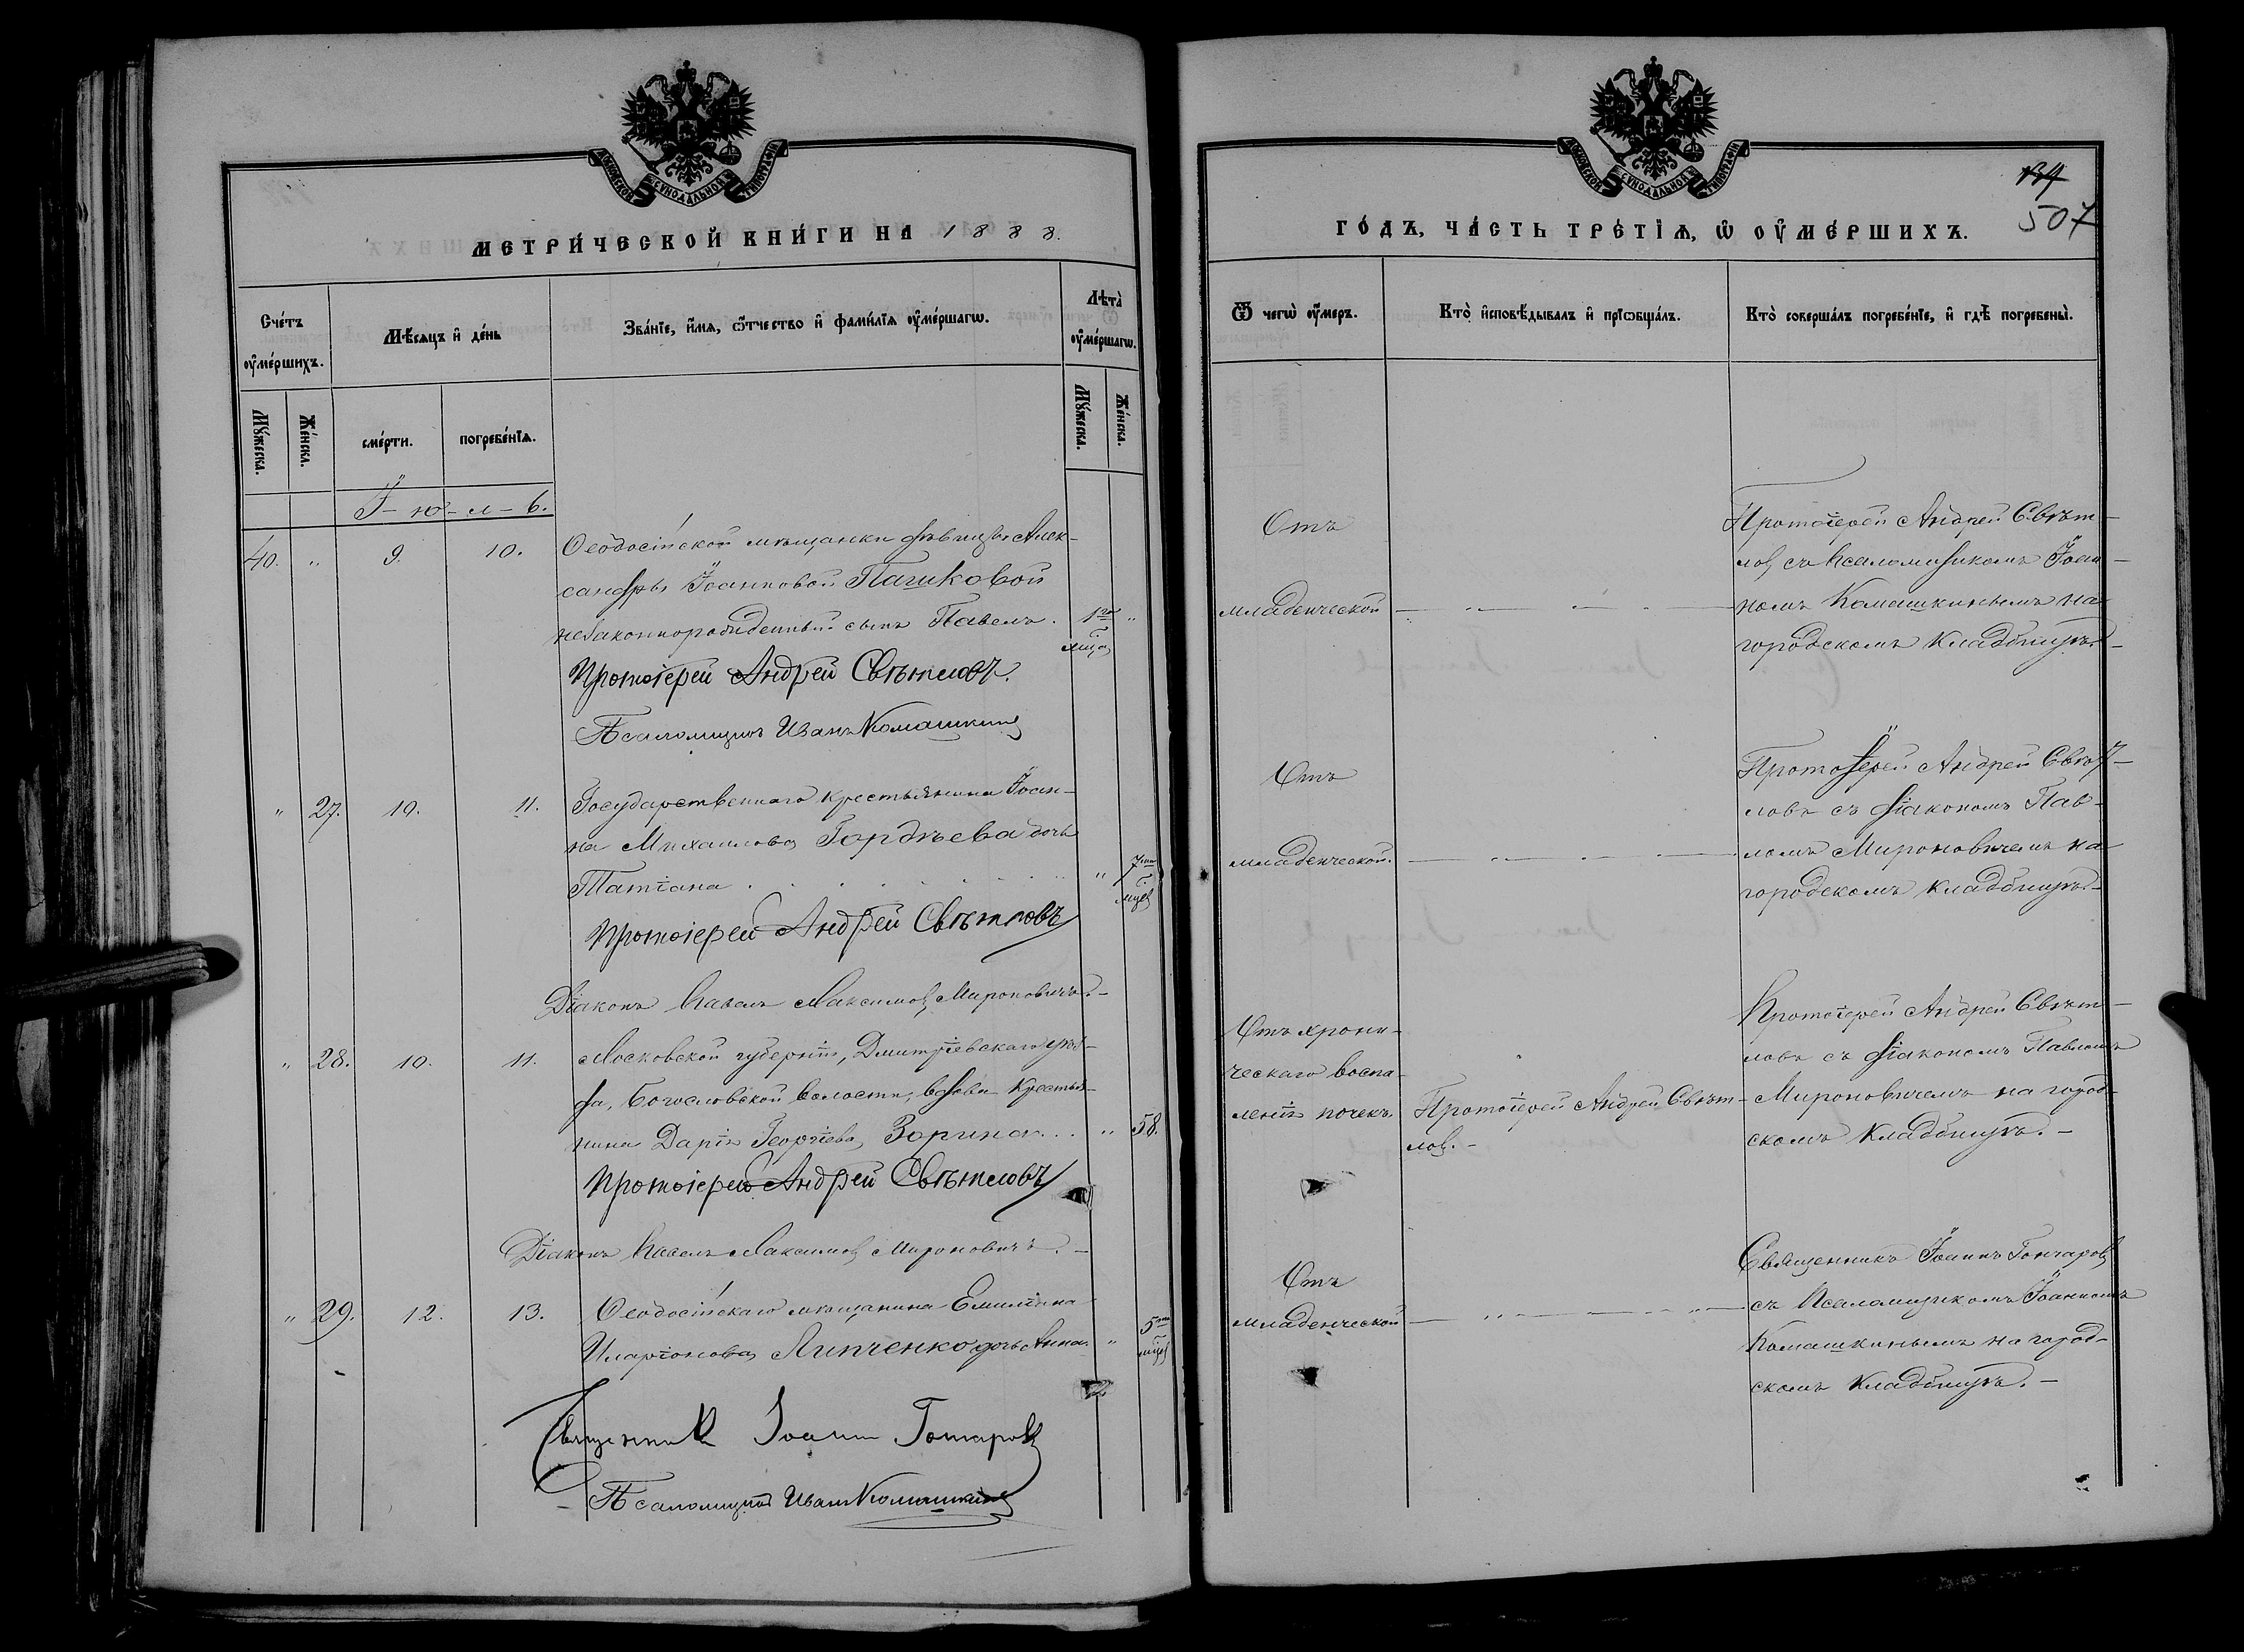 МОСКОВСКОЙ СѴНОДАЛЬНОЙ ТИПОГРАФІИ
МЕТРИ́ЧЕСКОЙ КНИ́ГИ НА 1888.
Сче́тъ ᲂу҆ме́ршихъ.
Мѣ́сяцъ и҆ де́нь
Зва́нїе, и҆́мѧ, ѻ҆́тчество и҆ фами́лїѧ ᲂу҆ме́ршагѡ.
Лѣта̀ ᲂу҆ме́ршагѡ.
Мꙋ́жеска.
Же́нска.
сме́рти.
погребе́нїѧ.
Мꙋ́жеска.
Же́нска.
Ї-ю-л-ь.
40. " 9. 10. Ѳеодосійской мѣщанки дѣвицы Алек-
сандры Іоанновой Пашковой
незаконнорожденный сынъ Павелъ. 1го "
мца
Протоіерей Андрей Свѣтловъ.
Псаломщикъ Иванъ Комашкинъ
" 27. 10. 11. Государственнаго крестьянина Іоан-
на Михаилова Гордѣева дочь
Татіана . . . . . . " 7ми
мцев
Протоіерей Андрей Свѣтловъ
Діаконъ Павелъ Максимовъ Мироновичъ.-
" 28. 10. 11. Московской губерніи, Дмитріевскаго уѣз-
да, Богословской волости, вдова крестья-
нина Дарія Георгіева Зорина . . " 58.
Протоіерей Андрей Свѣтловъ
Діаконъ Павелъ Максимовъ Мироновичъ.-
" 29. 12. 13. Ѳеодосійскаго мѣщанина Емиліана
Иларіонова Липченко дочь Анна. " 5ти
мцев
Священникъ Іоаннъ Гончаровъ
Псаломщикъ Иванъ Комашкинъ
МОСКОВСКОЙ СѴНОДАЛЬНОЙ ТИПОГРАФІИ
507
ГО́ДЪ, ЧА́СТЬ ТРЕ́ТЇѦ, Ѡ҆ ОУ҆МЕ́РШИХЪ.
Ѿ чегѡ̀ ᲂу҆́меръ.
Кто̀ и҆сповѣ́дывалъ и҆ прїѡбща́лъ.
Кто̀ соверша́лъ погребе́нїе, и҆ гдѣ̀ погребены̀.
Отъ
младенческой
Протоіерей Андрей Свѣт-
ловъ съ Псаломщикомъ Іоан-
номъ Комашкинымъ на
городскомъ кладбищѣ.-
Отъ
младенческой.
Протоіерей Андрей Свѣт-
ловъ съ діакономъ Пав-
ломъ Мироновичемъ на
городскомъ кладбищѣ.-
Отъ хрони-
ческаго воспа-
ленія почекъ.
Протоіерей Андрей Свѣт-
ловъ.-
Протоіерей Андрей Свѣт-
ловъ съ діакономъ Павломъ
Мироновичемъ на город-
скомъ кладбищѣ.-
Отъ
младенческой
Священникъ Іоаннъ Гончаровъ
съ Псаломщикомъ Іоанномъ
Комашкинымъ на город-
скомъ кладбищѣ.-